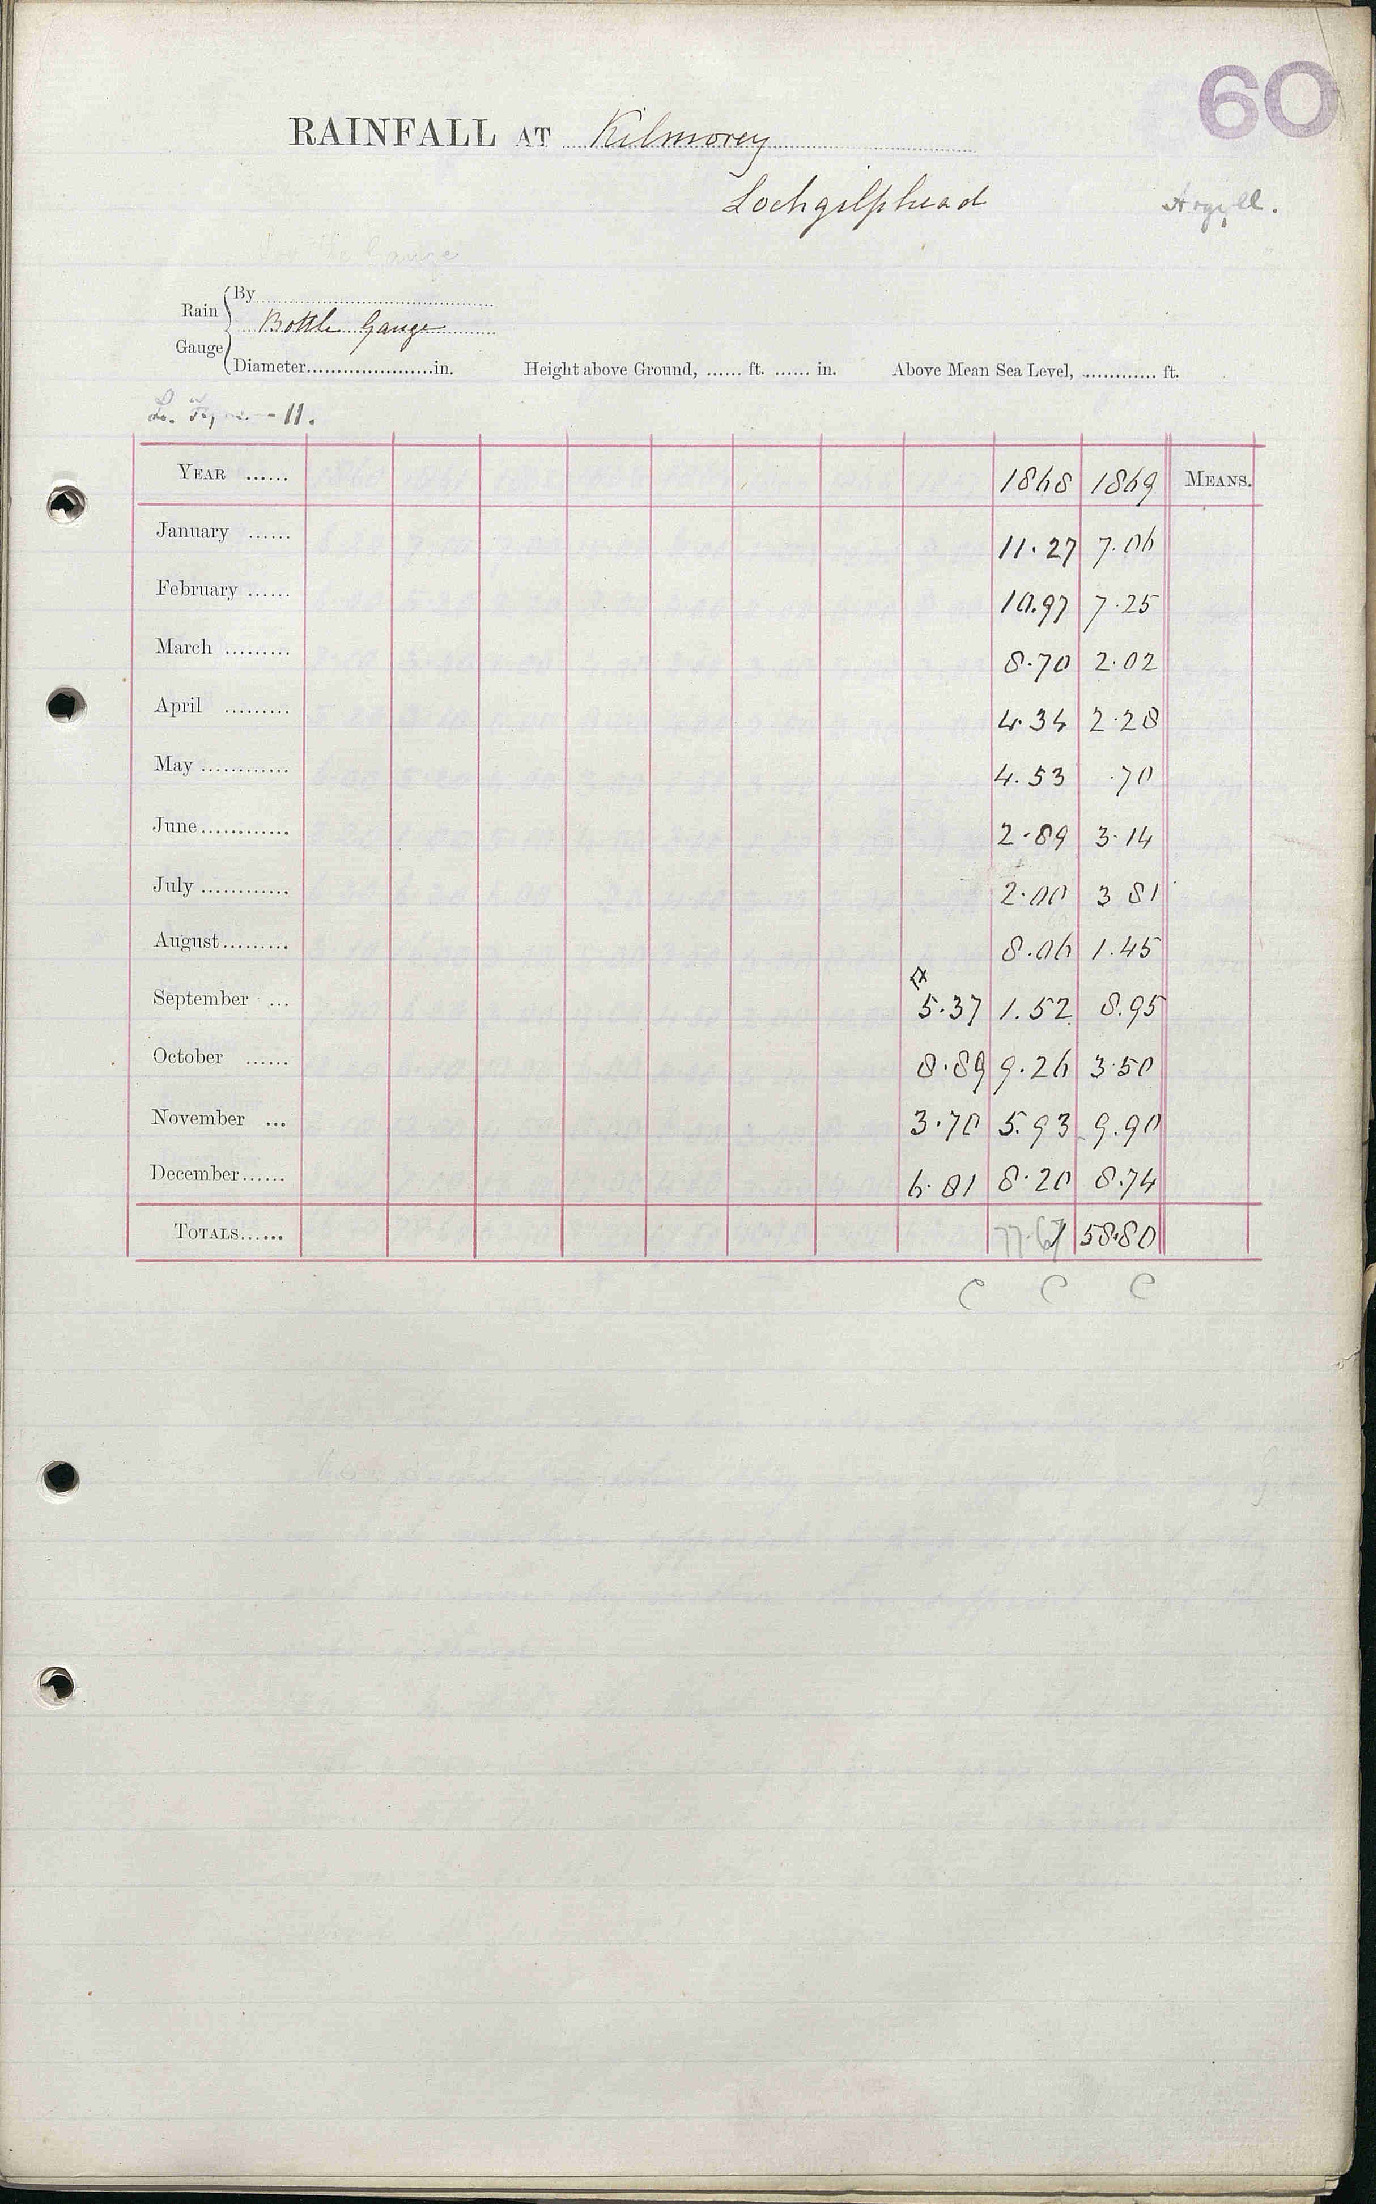 60
RAINFALL AT Kilmorey
Lochgilphead Argyll.
Rain Gauge
By
Bottle Gauge
Diameter in. Height above Ground, ft. in. Above Mean Sea Level, ft.
11.
YEAR 1868 1869 MEANS.
January 11.27 7.06
February 10.97 7.25
March 8.70 2.02
April 4.34 2.28
May 4.53 .70
June 2.89 3.14
July 2.00 3 81
August 8.06 1.45
September 5.37 1.52 8.95
October 8.89 9.26 3.50
November 3.70 5.93 9.90
December 6.81 8.20 8.74
TOTALS 77.67 58.80
C C C